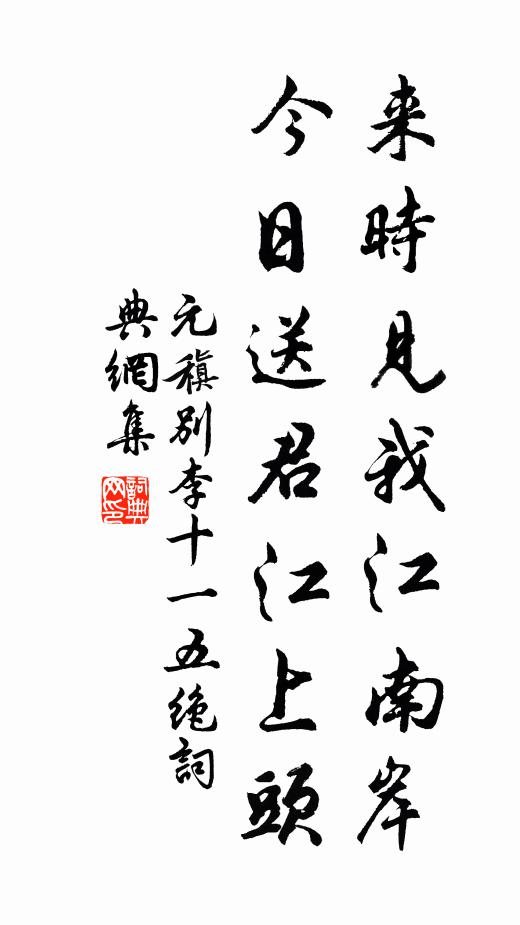 来時見我江南岸
今日送君江上頭
元稹別李十一五絶詞
典網集
詞典
网印